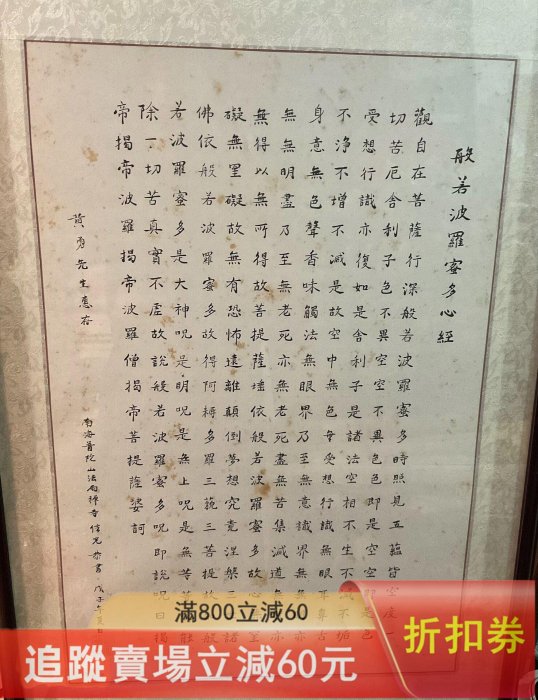 般若波羅蜜多心經
觀自在菩薩行深般若波羅蜜多時照見五蘊皆空度一
切苦厄舍利子色不異空空不異色色即是空空即是色
受想行識亦復如是舍利子是諸法空相不生不滅不垢
不淨不增不減是故空中無色無受想行識無眼耳鼻舌
身意無色聲香味觸法無眼界乃至無意識界無無明亦
無無明盡乃至無老死亦無老死盡無苦集滅道無亦
無得以無所得故菩提薩埵依般若波羅蜜多故心罣
礙無罣礙故無有恐怖遠離顛倒夢想究竟涅槃三諸
佛依般若波羅蜜多故得阿耨多羅三藐三菩提故般
若波羅蜜多是大神呪是明呪是無上呪是無等等能
除一切苦真實不虛故說般若波羅蜜多呪即說呪曰揭
帝揭帝波羅揭帝波羅僧揭帝菩提薩婆訶
黃勇先生惠存
南海普陀山法雨禪寺信光恭書戊子年
滿800立減60
追蹤賣場立減60元
折扣券